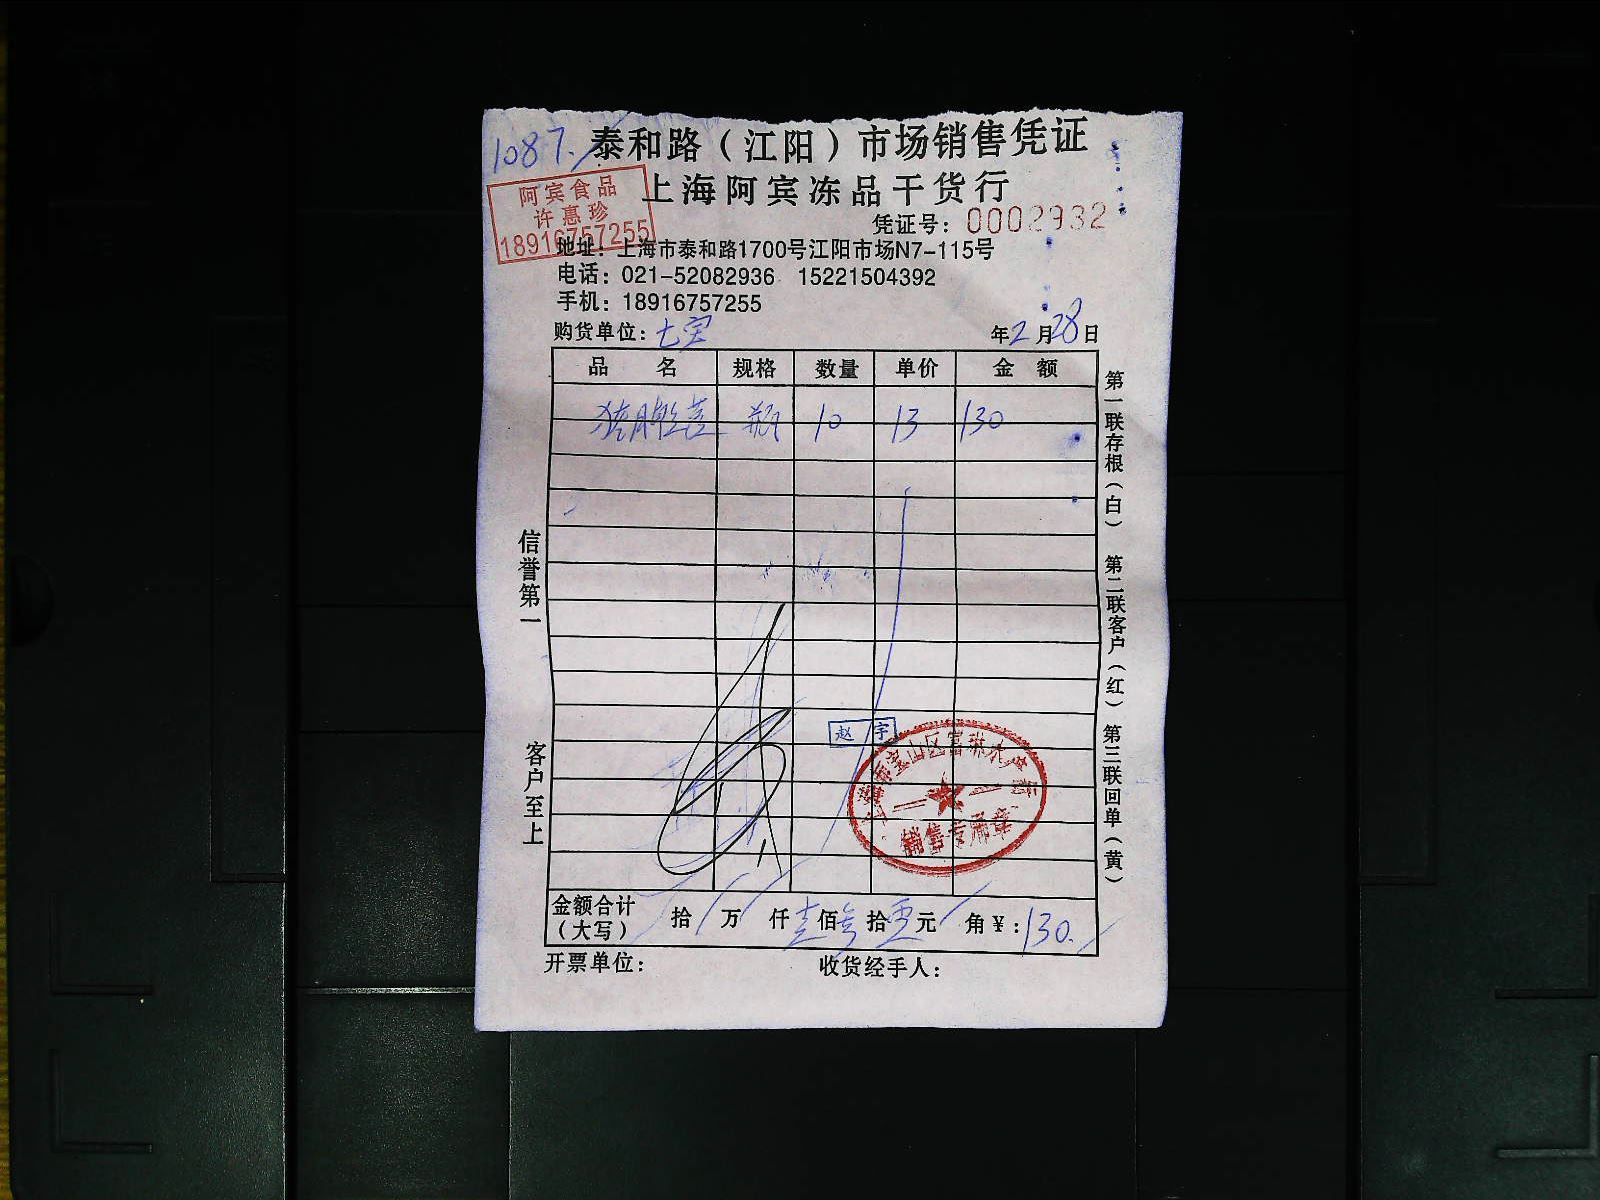 1087.
泰和路（江阳）市场销售凭证
上海阿宾冻品干货行
阿宾食品
许惠珍
18916757255
凭证号：0002932
地址：上海市泰和路1700号江阳市场N7-115号
电话：021-52082936 15221504392
手机：18916757255
购货单位：七宝 年2月28日
品名 规格 数量 单价 金额
瓶 10 13 130
信誉第一
客户至上
第一联存根（白） 第二联客户（红） 第三联回单（黄）
赵宇
上海市宝山区富琳水产行
销售专用章
金额合计（大写） 拾 万 仟壹佰叁拾零元 角￥:130.
开票单位： 收货经手人：